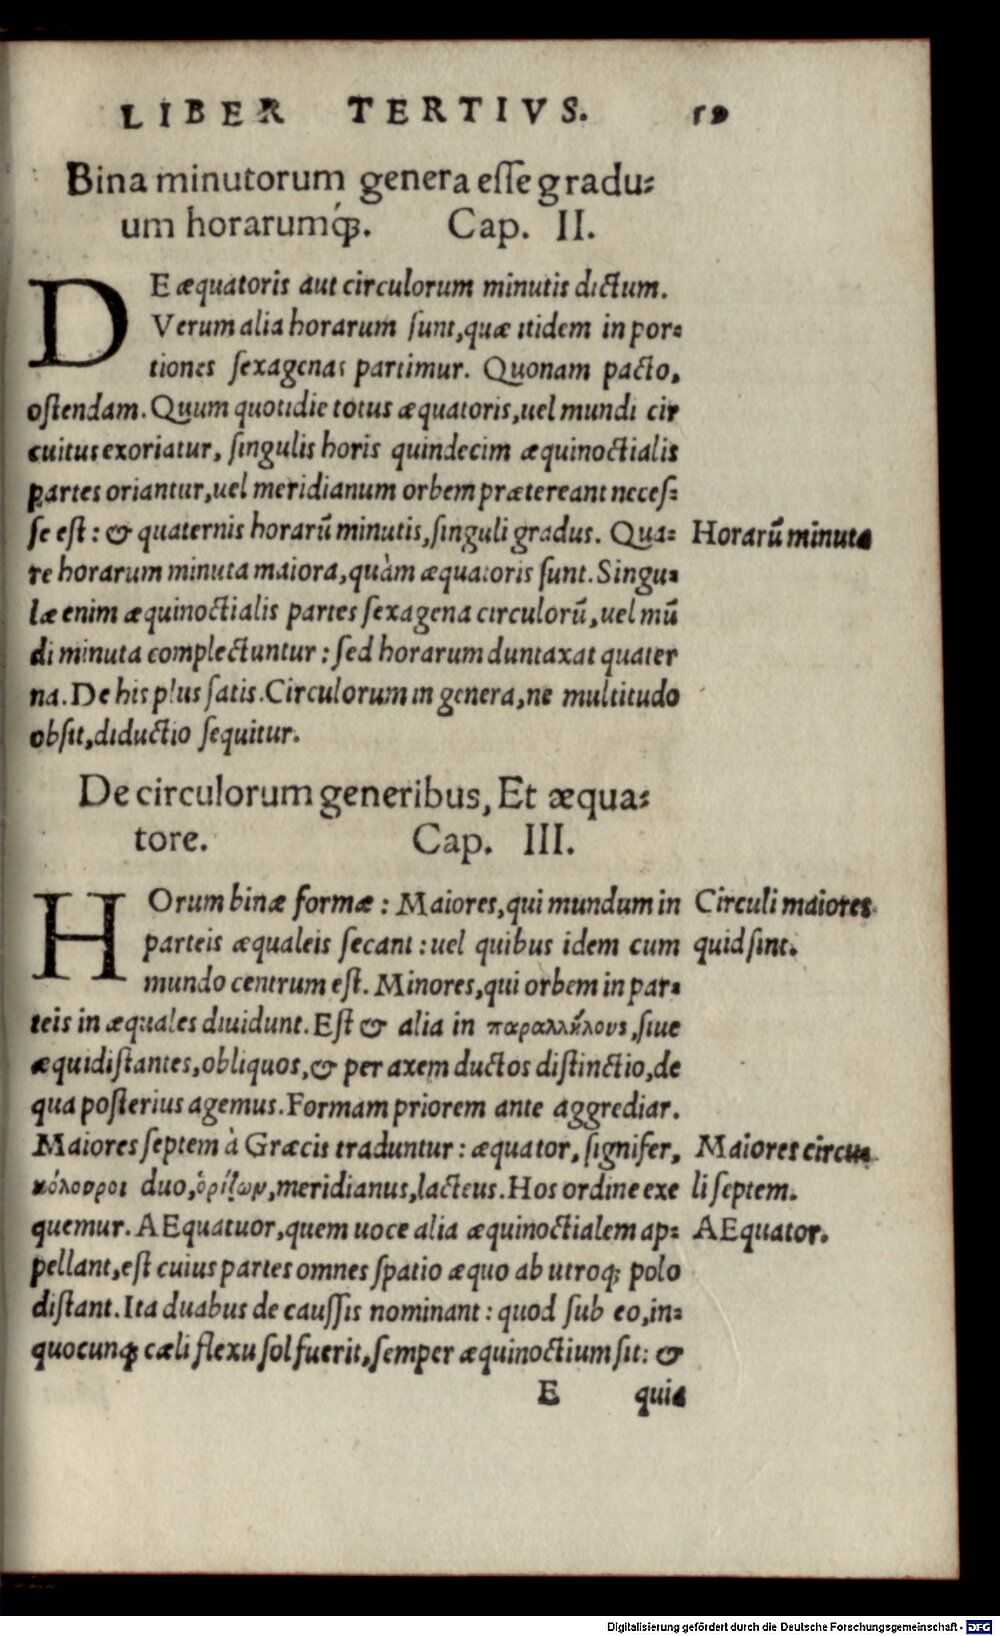 LIBER TERTIVS. 59
Bina minutorum genera esse gradu:
um horarumq́;. Cap. II.
DE æquatoris aut circulorum minutis dictum.
Verum alia horarum sunt, quæ itidem in por:
tiones sexagenas partimur. Quonam pacto,
ostendam. Quum quotidie totus æquatoris, uel mundi cir
cuitus exoriatur, singulis horis quindecim æquinoctialis
partes oriantur, uel meridianum orbem prætereant neces:
se est: & quaternis horarū minutis, singuli gradus. Qua: Horarū minuta
re horarum minuta maiora, quàm æquatoris sunt. Singu:
læ enim æquinoctialis partes sexagena circulorū, uel mū
di minuta complectuntur: sed horarum duntaxat quater
na. De his plus satis. Circulorum in genera, ne multitudo
obsit, diductio sequitur.
De circulorum generibus, Et æqua:
tore. Cap. III.
HOrum binæ formæ: Maiores, qui mundum in Circuli maiores
parteis æqualeis secant: uel quibus idem cum quid sint.
mundo centrum est. Minores, qui orbem in par:
teis in æquales diuidunt. Est & alia in παραλλήλους, siue
æquidistantes, obliquos, & per axem ductos distinctio, de
qua posterius agemus. Formam priorem ante aggrediar.
Maiores septem à Græcis traduntur: æquator, signifer, Maiores circu
κόλουροι duo, ὁρίζων, meridianus, lacteus. Hos ordine exe li septem.
quemur. AEquatuor, quem uoce alia æquinoctialem ap: AEquator.
pellant, est cuius partes omnes spatio æquo ab utroq; polo
distant. Ita duabus de caussis nominant: quod sub eo, in:
quocunq; cæli flexu sol fuerit, semper æquinoctium sit: &
E quia
Digitalisierung gefördert durch die Deutsche Forschungsgemeinschaft - DFG